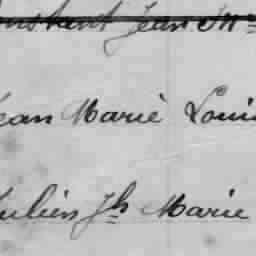 Jean M
Jean Marie Louis
Julien Jh Marie